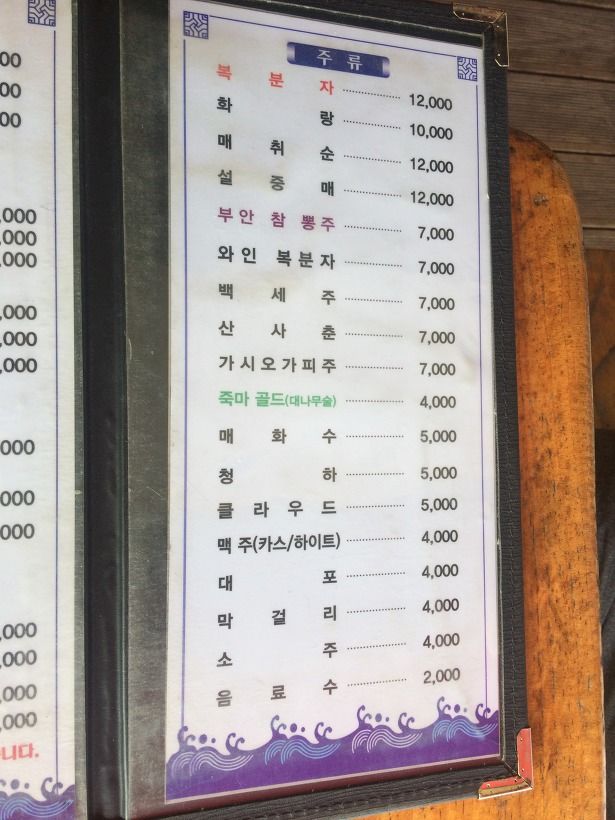 00
00
00
,000
,000
,000
,000
,000
,000
000
000
000
,000
,000
,000
,000
니다.
주 류
복 분 자 12,000
화 랑 10,000
매 취 순 12,000
설 중 매 12,000
부안 참 뽕주 7,000
와인 복분자 7,000
백 세 주 7,000
산 사 춘 7,000
가시오가피주 7,000
죽마 골드(대나무술) 4,000
매 화 수 5,000
청 하 5,000
클 라 우 드 5,000
맥 주(카스/하이트) 4,000
대 포 4,000
막 걸 리 4,000
소 주 4,000
음 료 수 2,000